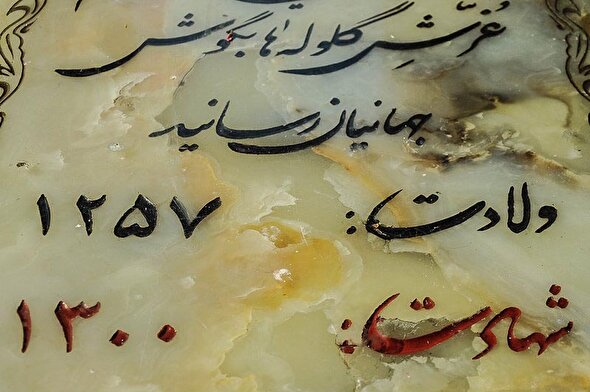 غرّشِ گلوله ها بگوش
جهانیان رسانید
ولادت: ۱۲۵۷
شهادت: ۱۳۰۰